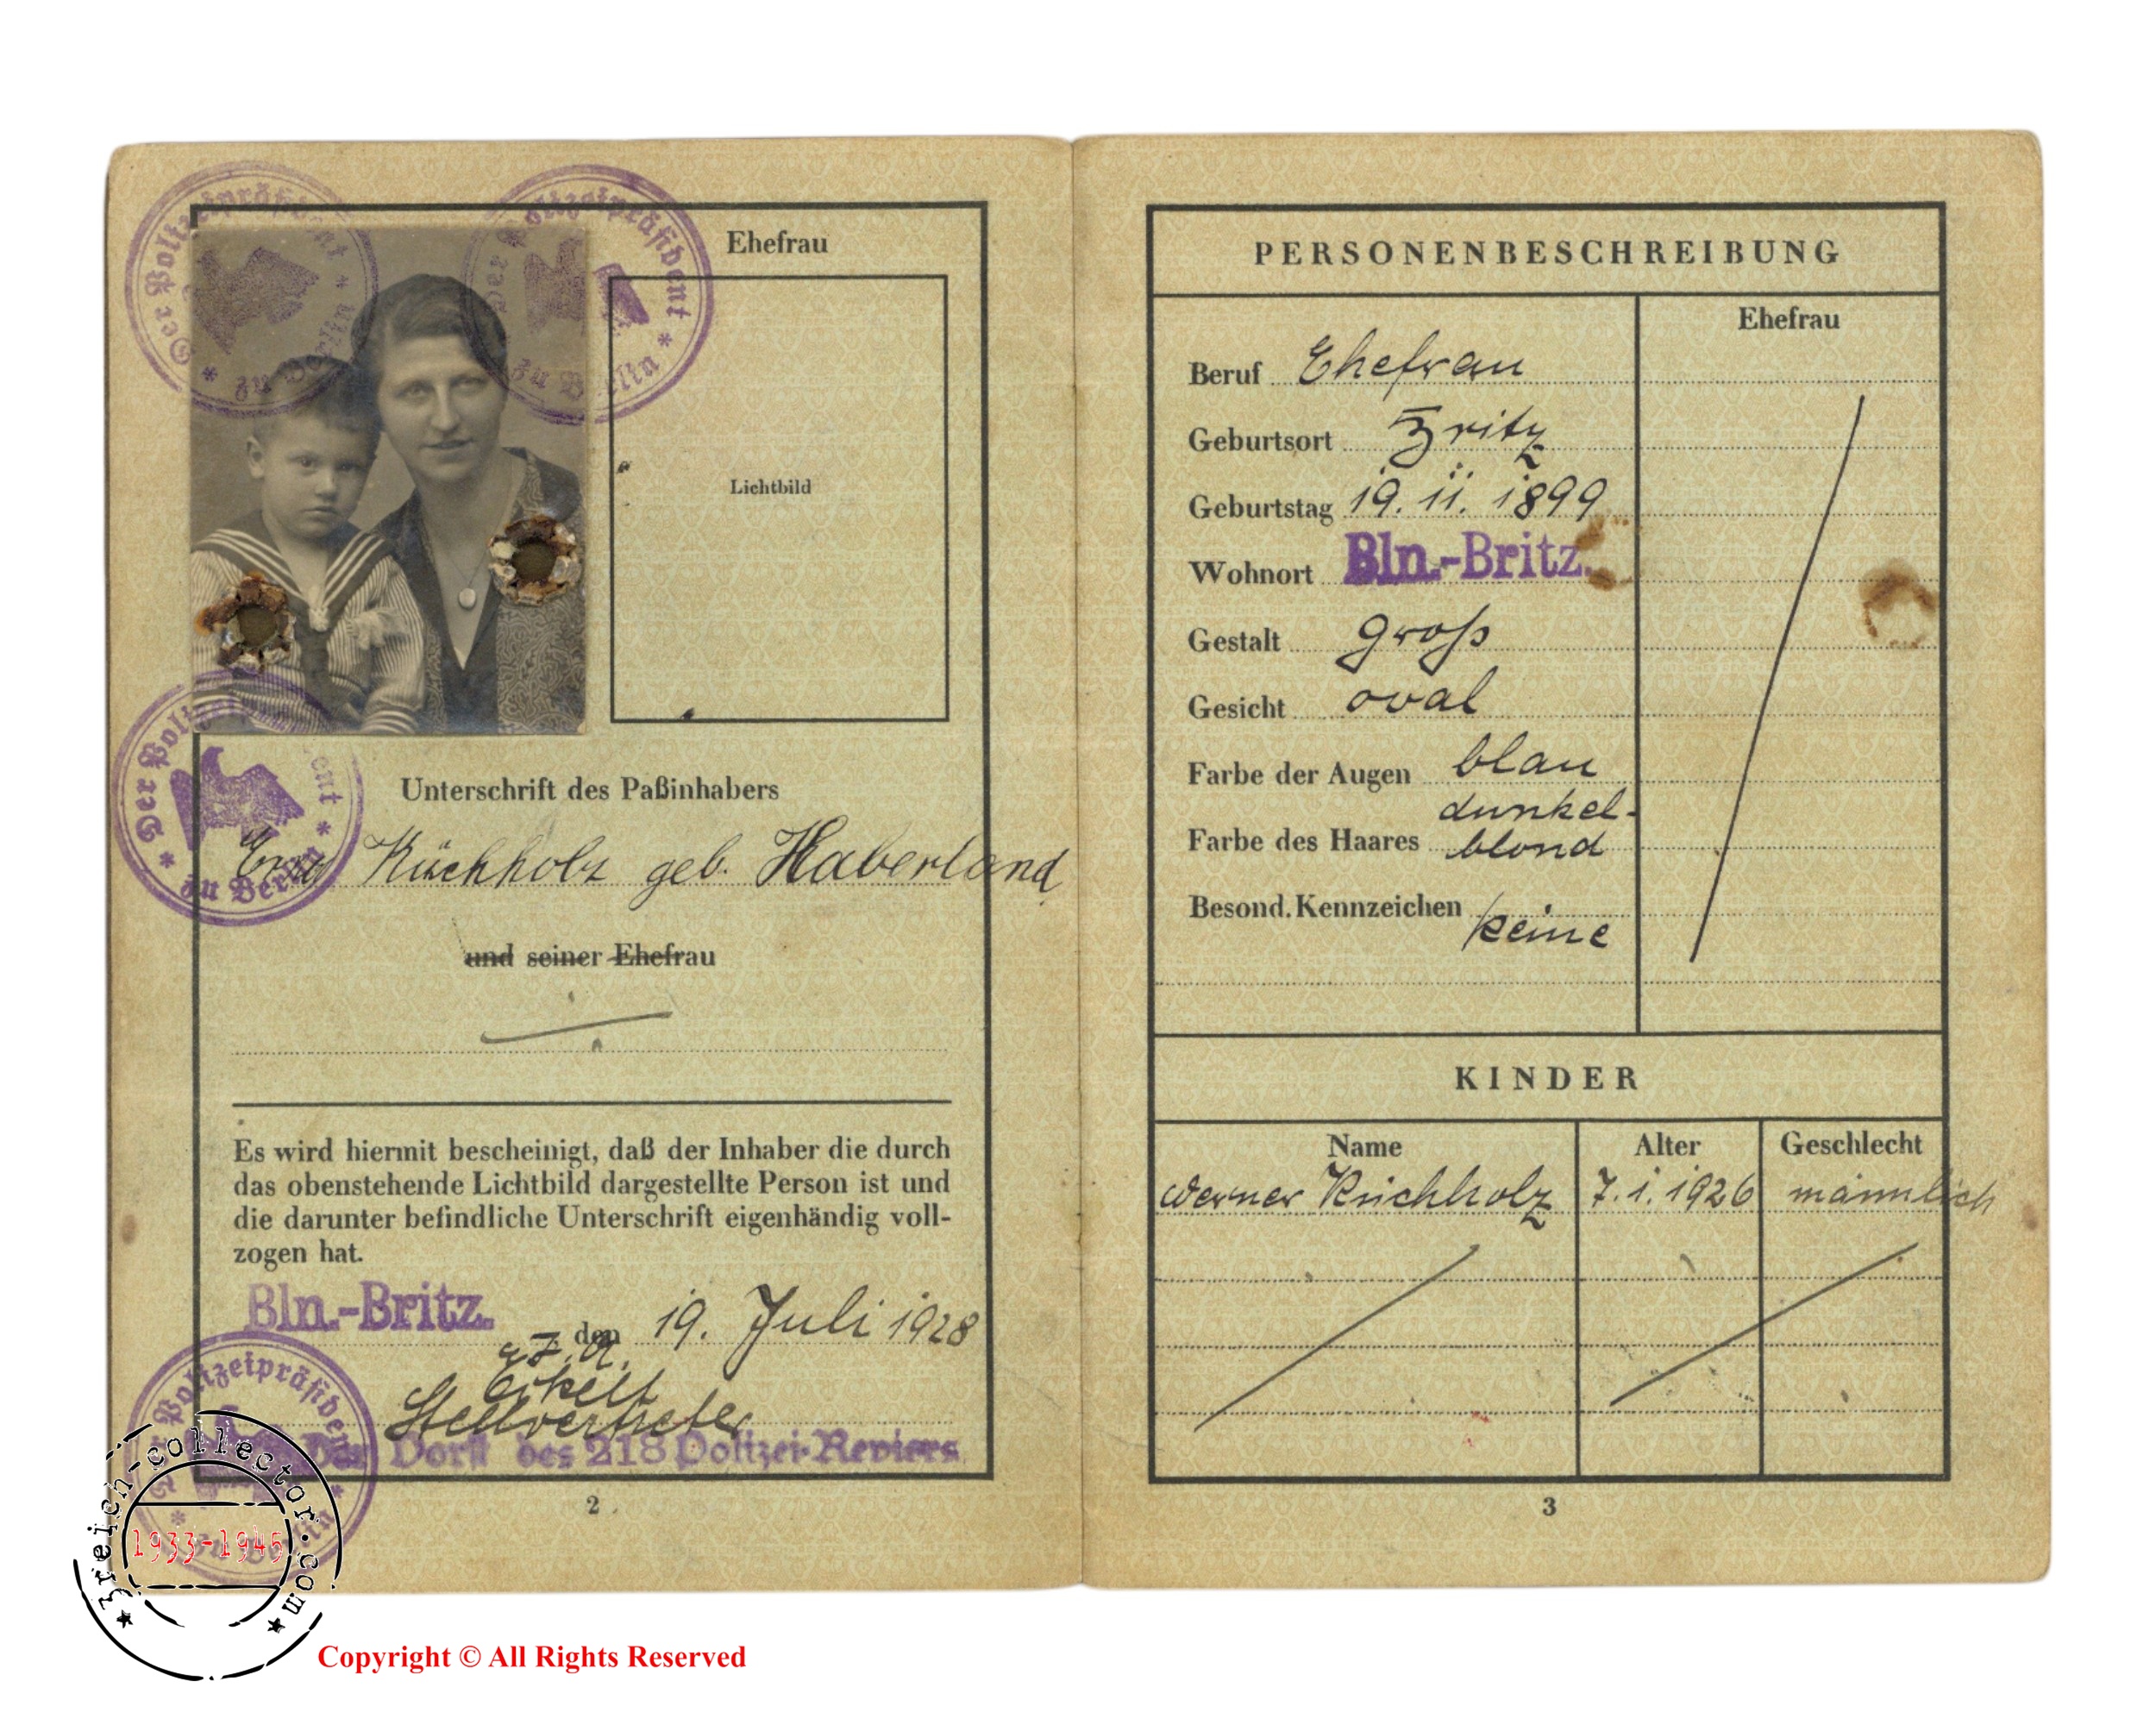 Ehefrau
Lichtbild
Der Polizeipräsident
* zu Berlin *
Der Polizeipräsident
* zu Berlin *
Unterschrift des Paßinhabers
Der Polizeipräsident
* zu Berlin *
Erna Küchholz geb. Haberland
und seiner Ehefrau
Es wird hiermit bescheinigt, daß der Inhaber die durch
das obenstehende Lichtbild dargestellte Person ist und
die darunter befindliche Unterschrift eigenhändig voll-
zogen hat.
Bln.-Britz. den 19. Juli 1928
Stellvertreter
Der Vorst des 218 Polizei-Reviers
Polizeipräsident
2
PERSONENBESCHREIBUNG
Ehefrau
Beruf Ehefrau
Geburtsort Britz
Geburtstag 19. 11. 1899
Wohnort Bln.-Britz.
Gestalt groß
Gesicht oval
Farbe der Augen blau
Farbe des Haares dunkel-
blond
Besond. Kennzeichen keine
KINDER
Name Alter Geschlecht
Werner Küchholz 7. 1. 1926 männlich
3
3reich-collector.com
1933-1945
Copyright © All Rights Reserved